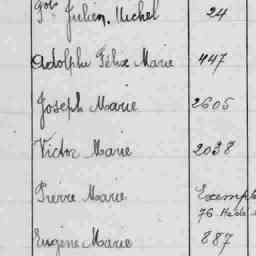 Julien, Michel 24
Adolphe Félix Marie 447
Joseph Marie 2605
Victor Marie 2038
Pierre Marie Exempt
76
Eugène Marie 887